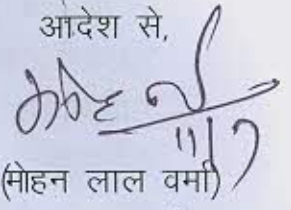 आदेश से,
11/7
(मोहन लाल वर्मा)